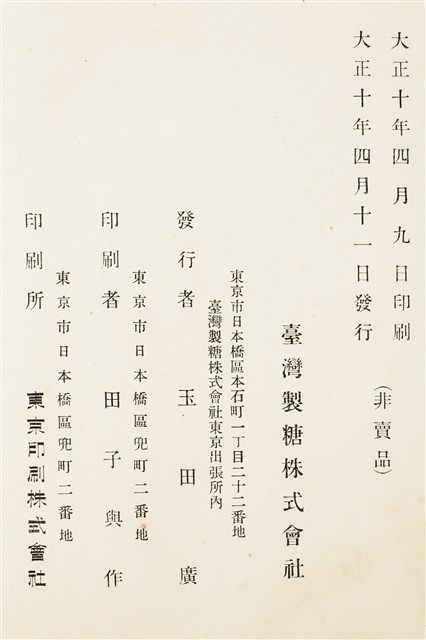 大正十年四月九日印刷
大正十年四月十一日發行
(非賣品)
臺灣製糖株式會社
東京市日本橋區本石町一丁目二十二番地
臺灣製糖株式會社東京出張所內
發行者 玉田廣
東京市日本橋區兜町二番地
印刷者 田子與作
東京市日本橋區兜町二番地
印刷所 東京印刷株式會社